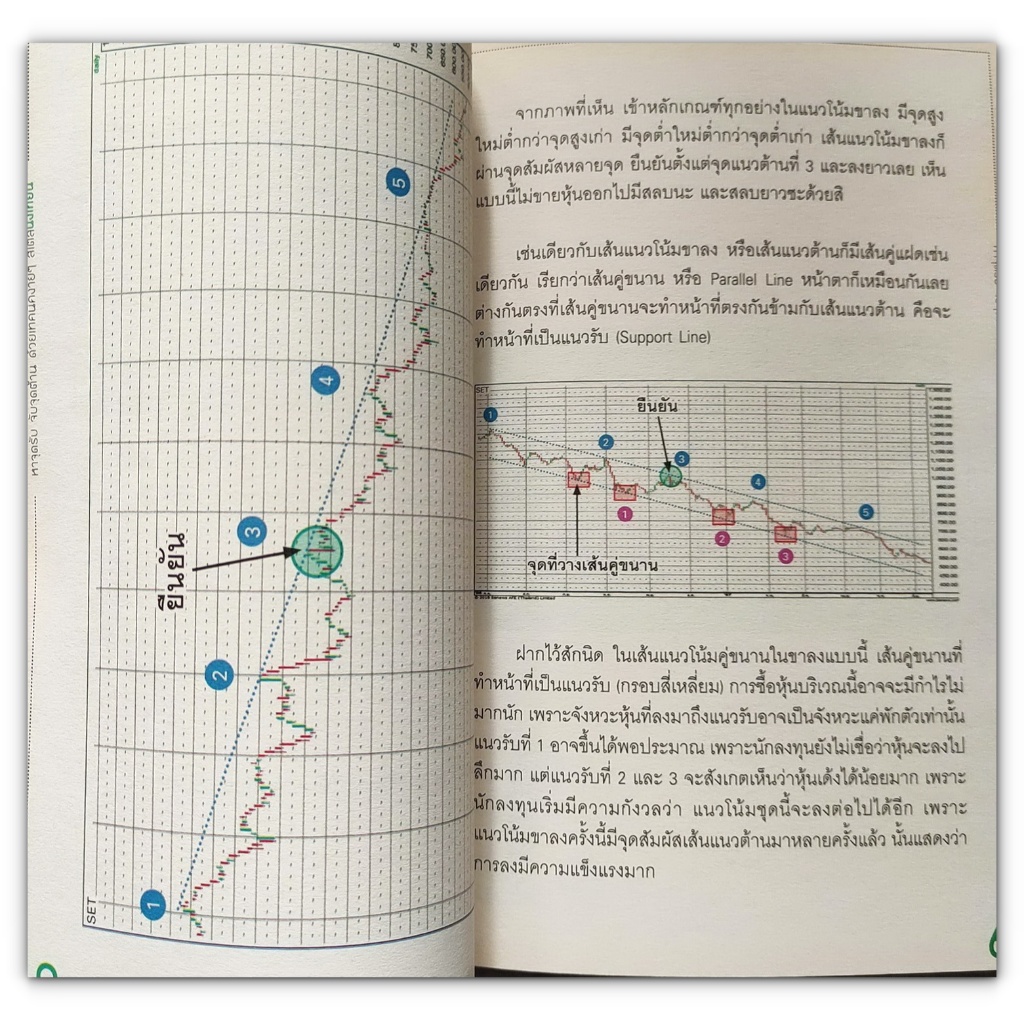 หาจุดรับ จับจุดต้าน ด้วยเทคนิคง่ายๆ สไตล์นิ่งเทียน
SET
daily
1
2
3
4
5
ยืนยัน
จากภาพที่เห็น เข้าหลักเกณฑ์ทุกอย่างในแนวโน้มขาลง มีจุดสูง
ใหม่ต่ำกว่าจุดสูงเก่า มีจุดต่ำใหม่ต่ำกว่าจุดต่ำเก่า เส้นแนวโน้มขาลงก็
ผ่านจุดสัมผัสหลายจุด ยืนยันตั้งแต่จุดแนวต้านที่ 3 และลงยาวเลย เห็น
แบบนี้ไม่ขายหุ้นออกไปมีสลบนะ และสลบยาวซะด้วยสิ
เช่นเดียวกับเส้นแนวโน้มขาลง หรือเส้นแนวต้านก็มีเส้นคู่แฝดเช่น
เดียวกัน เรียกว่าเส้นคู่ขนาน หรือ Parallel Line หน้าตาก็เหมือนกันเลย
ต่างกันตรงที่เส้นคู่ขนานจะทำหน้าที่ตรงกันข้ามกับเส้นแนวต้าน คือจะ
ทำหน้าที่เป็นแนวรับ (Support Line)
SET
ยืนยัน
1
2
3
4
5
1
2
3
จุดที่วางเส้นคู่ขนาน
ฝากไว้สักนิด ในเส้นแนวโน้มคู่ขนานในขาลงแบบนี้ เส้นคู่ขนานที่
ทำหน้าที่เป็นแนวรับ (กรอบสี่เหลี่ยม) การซื้อหุ้นบริเวณนี้อาจจะมีกำไรไม่
มากนัก เพราะจังหวะหุ้นที่ลงมาถึงแนวรับอาจเป็นจังหวะแค่พักตัวเท่านั้น
แนวรับที่ 1 อาจขึ้นได้พอประมาณ เพราะนักลงทุนยังไม่เชื่อว่าหุ้นจะลงไป
ลึกมาก แต่แนวรับที่ 2 และ 3 จะสังเกตเห็นว่าหุ้นเด้งได้น้อยมาก เพราะ
นักลงทุนเริ่มมีความกังวลว่า แนวโน้มชุดนี้จะลงต่อไปได้อีก เพราะ
แนวโน้มขาลงครั้งนี้มีจุดสัมผัสเส้นแนวต้านมาหลายครั้งแล้ว นั้นแสดงว่า
การลงมีความแข็งแรงมาก